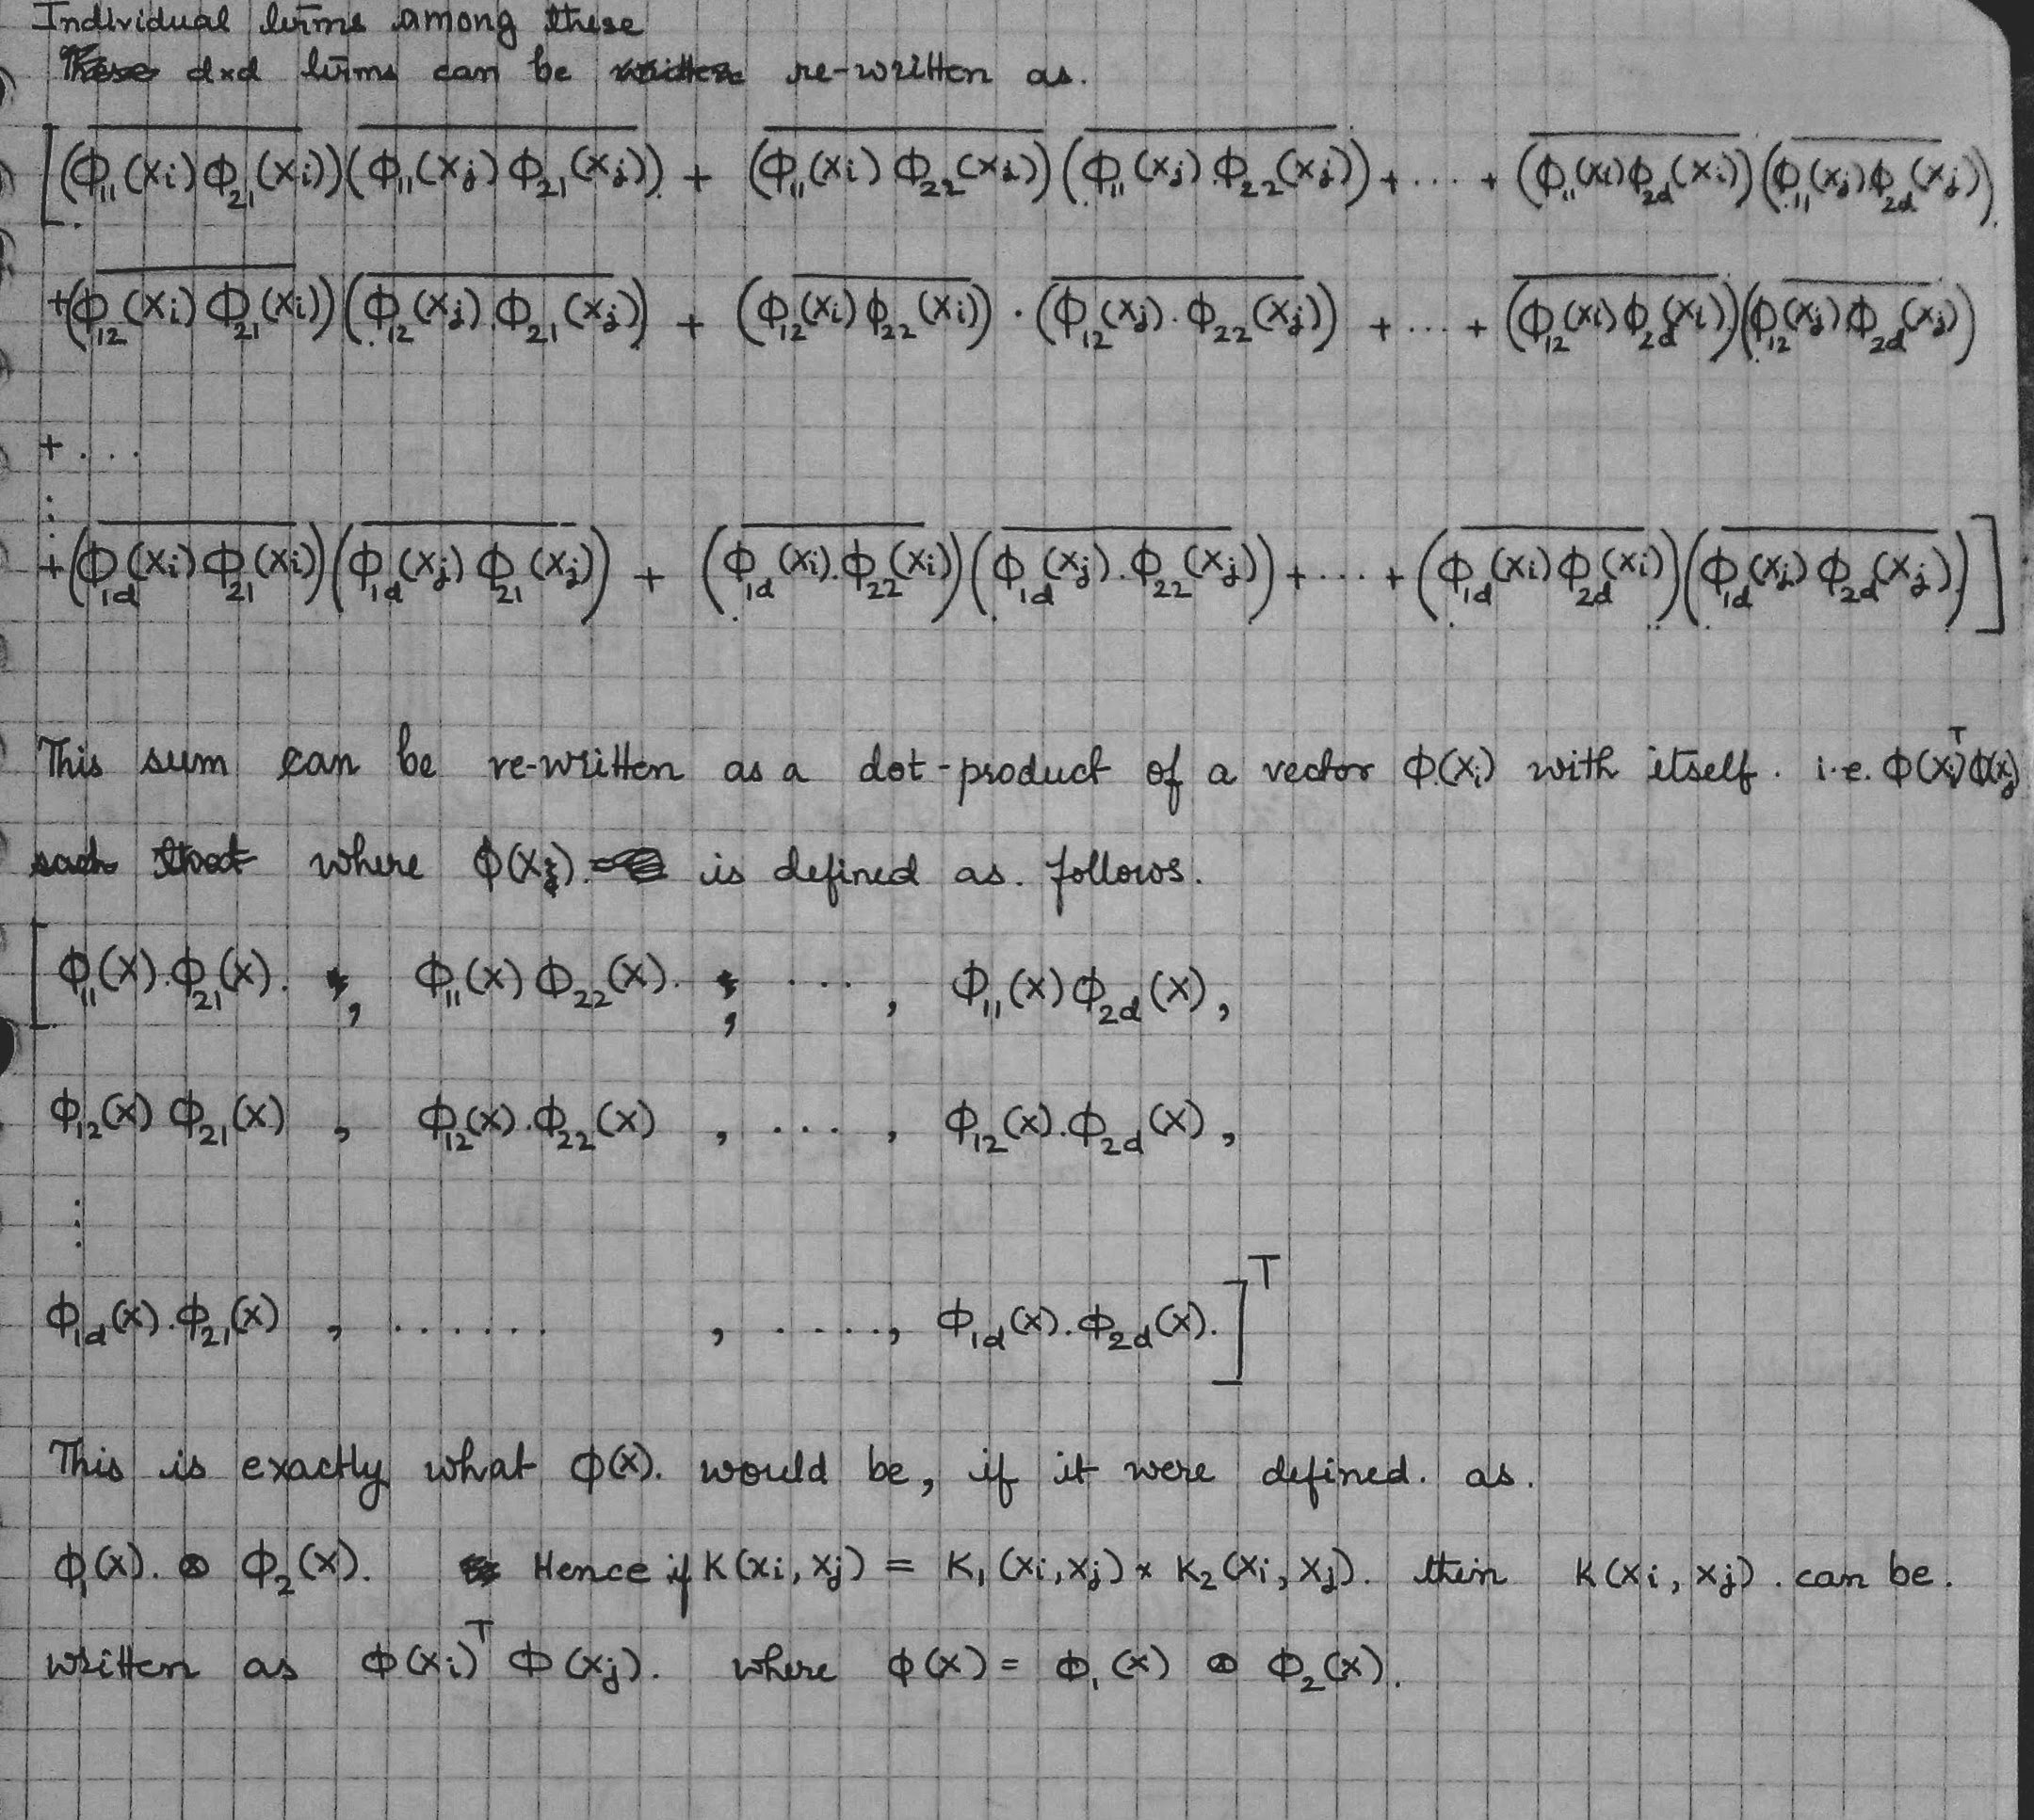 Individual terms among these
d×d terms can be re-written as.
[(ϕ₁₁(xi) ϕ₂₁(xi))(ϕ₁₁(xj) ϕ₂₁(xj)) + (ϕ₁₁(xi) ϕ₂₂(xi))(ϕ₁₁(xj) ϕ₂₂(xj)) + ... + (ϕ₁₁(xi) ϕ₂d(xi))(ϕ₁₁(xj) ϕ₂d(xj))
+(ϕ₁₂(xi) ϕ₂₁(xi))(ϕ₁₂(xj) ϕ₂₁(xj)) + (ϕ₁₂(xi) ϕ₂₂(xi)) · (ϕ₁₂(xj) · ϕ₂₂(xj)) + ... + (ϕ₁₂(xi) ϕ₂d(xi))(ϕ₁₂(xj) ϕ₂d(xj))
+ ...
⋮
+(ϕ₁d(xi) ϕ₂₁(xi))(ϕ₁d(xj) ϕ₂₁(xj)) + (ϕ₁d(xi) · ϕ₂₂(xi))(ϕ₁d(xj) · ϕ₂₂(xj)) + ... + (ϕ₁d(xi) ϕ₂d(xi))(ϕ₁d(xj) ϕ₂d(xj))]
This sum can be re-written as a dot-product of a vector ϕ(xi) with itself. i.e. ϕ(xi)ᵀϕ(xj)
where ϕ(xi) is defined as. follows.
[ϕ₁₁(x) · ϕ₂₁(x) , ϕ₁₁(x) ϕ₂₂(x) , ... , ϕ₁₁(x) ϕ₂d(x),
ϕ₁₂(x) ϕ₂₁(x) , ϕ₁₂(x) · ϕ₂₂(x) , ... , ϕ₁₂(x) · ϕ₂d(x),
⋮
ϕ₁d(x) · ϕ₂₁(x) , ...... , ...., ϕ₁d(x) · ϕ₂d(x).]ᵀ
This is exactly what ϕ(x). would be, if it were defined. as.
ϕ₁(x). ⊗ ϕ₂(x). Hence if K(xi, xj) = K₁(xi, xj) × K₂(xi, xj). then K(xi, xj). can be.
written as ϕ(xi)ᵀ ϕ(xj). where ϕ(x) = ϕ₁(x) ⊗ ϕ₂(x).